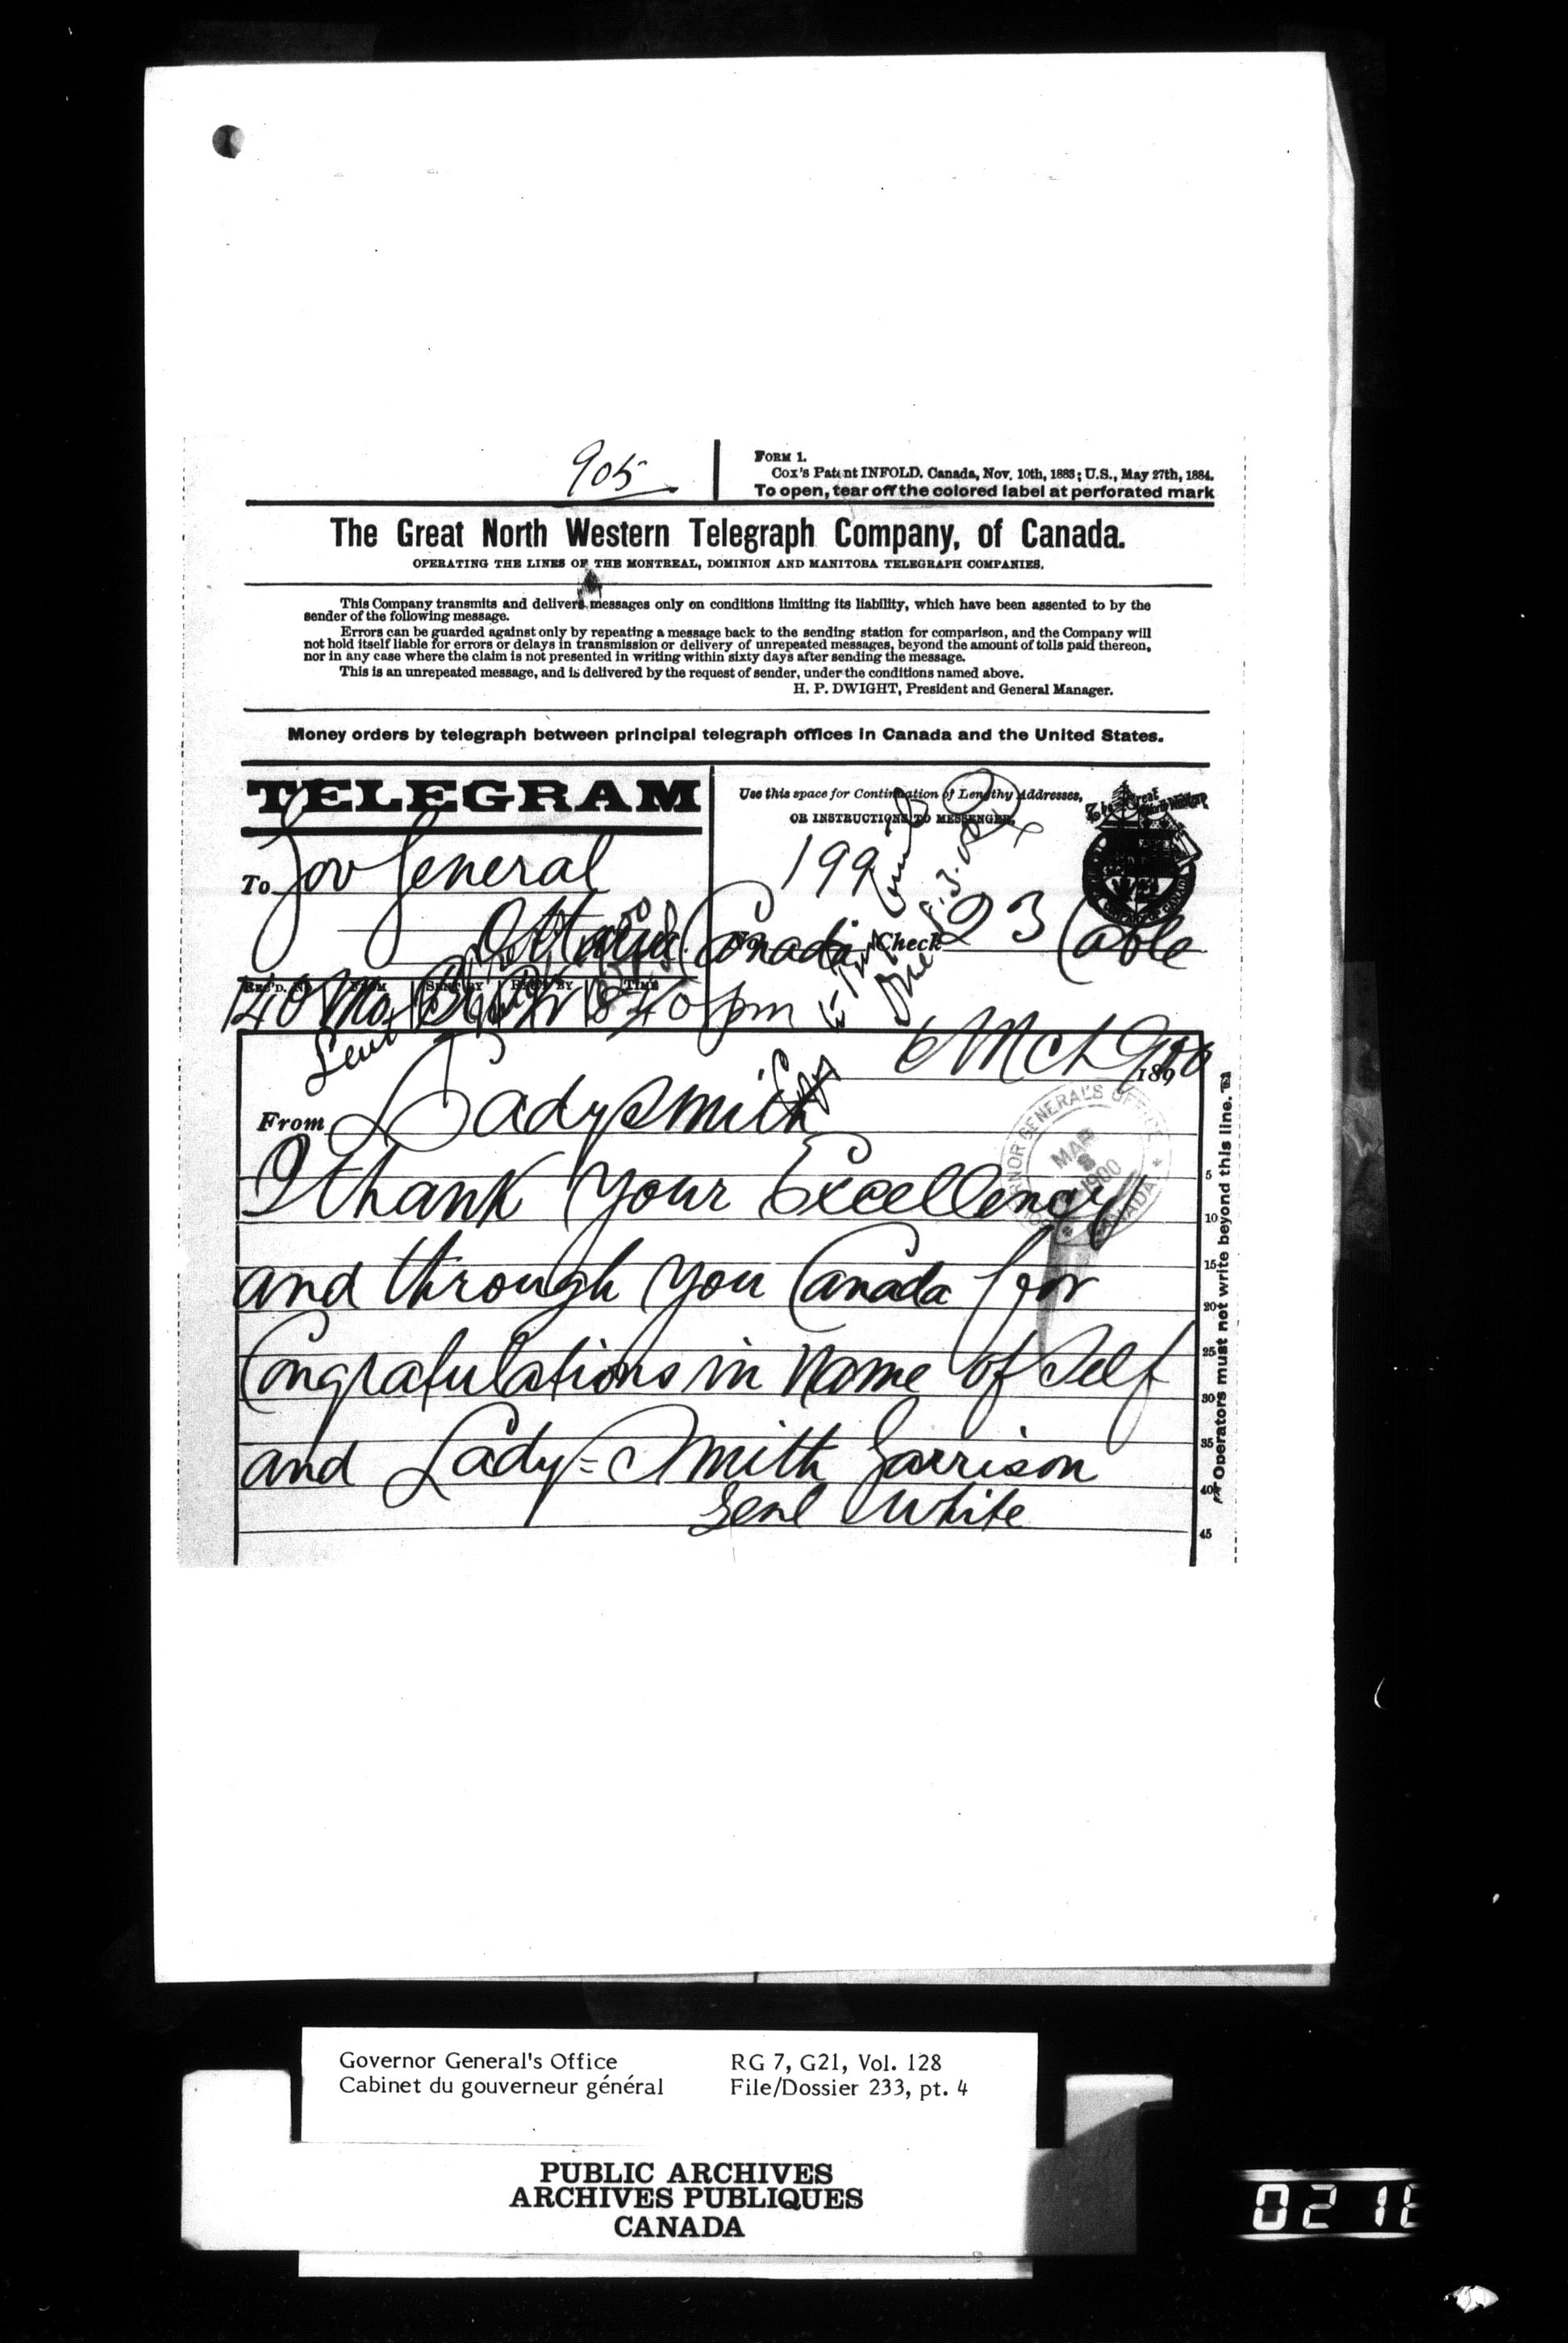 905
FORM 1.
Cox's Patent INFOLD. Canada, Nov. 10th, 1883; U.S., May 27th, 1884.
To open, tear off the colored label at perforated mark
The Great North Western Telegraph Company, of Canada.
OPERATING THE LINES OF THE MONTREAL, DOMINION AND MANITOBA TELEGRAPH COMPANIES.
This Company transmits and delivers messages only on conditions limiting its liability, which have been assented to by the
sender of the following message.
Errors can be guarded against only by repeating a message back to the sending station for comparison, and the Company will
not hold itself liable for errors or delays in transmission or delivery of unrepeated messages, beyond the amount of tolls paid thereon,
nor in any case where the claim is not presented in writing within sixty days after sending the message.
This is an unrepeated message, and is delivered by the request of sender, under the conditions named above.
H. P. DWIGHT, President and General Manager.
Money orders by telegraph between principal telegraph offices in Canada and the United States.
TELEGRAM
Use this space for Continuation of Lengthy Addresses,
OR INSTRUCTIONS TO MESSENGER.
To Gov General
199
Ottawa Canada Check 23 Cable
REC'D. No FROM SENT BY REC'D BY TIME
140 Mo 840 pm
6 Mch 900
189
Sent
From Ladysmith
GOVERNOR GENERAL'S OFFICE
MAR
8
1900
CANADA
I thank your Excellency
and through you Canada for
Congratulations in name of Self
and Lady=Smith Garrison
Genl White
5
10
15
20
25
30
35
40
45
Operators must not write beyond this line.
Governor General's Office RG 7, G21, Vol. 128
Cabinet du gouverneur général File/Dossier 233, pt. 4
PUBLIC ARCHIVES
ARCHIVES PUBLIQUES
CANADA